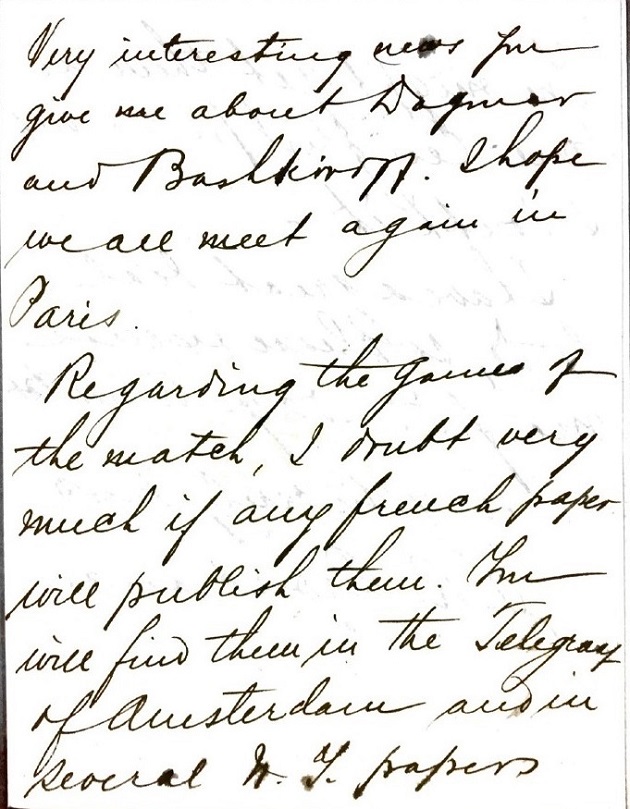 Very interesting news you
give me about Dagmar
and Bashkiroff. I hope
we all meet again in
Paris.
Regarding the games of
the match, I doubt very
much if any french paper
will publish them. You
will find them in the Telegraaf
of Amsterdam and in
several N. Y. papers